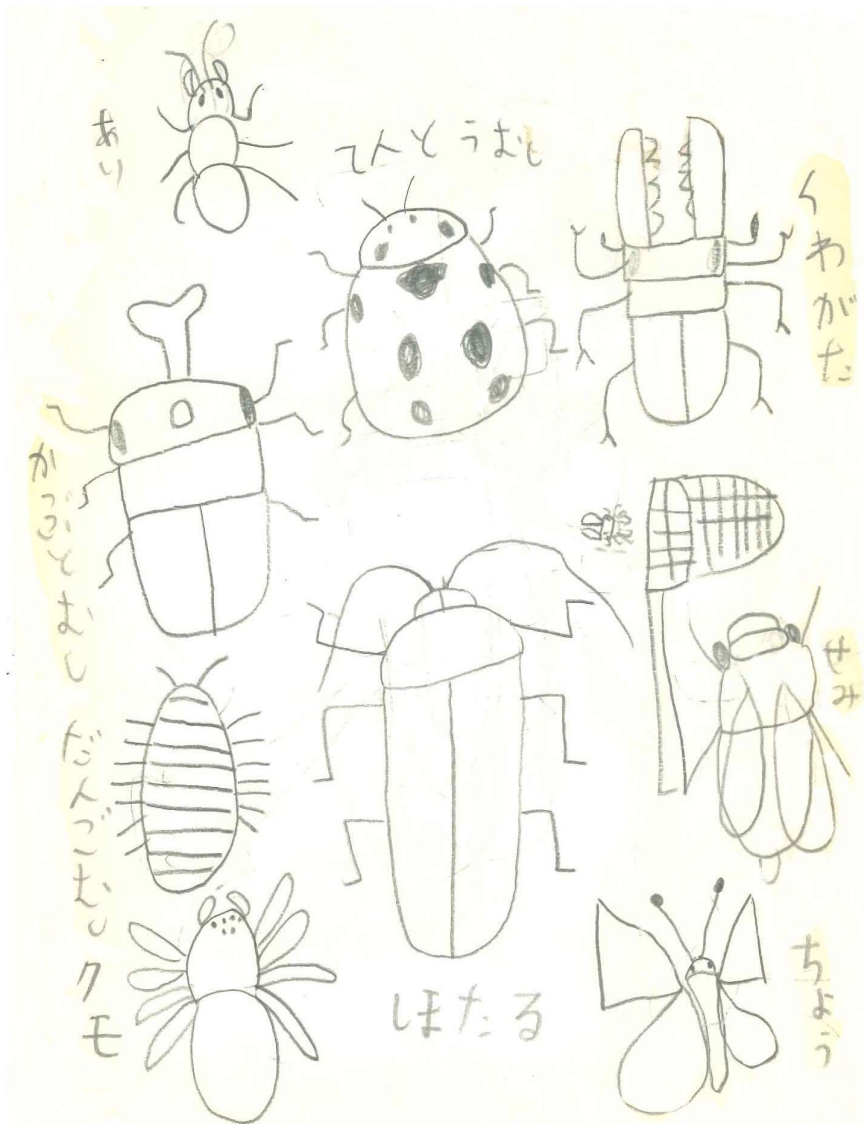 あり
てんとうむし
くわがた
かぶとむし
せみ
だんごむし
クモ
ほたる
ちょう